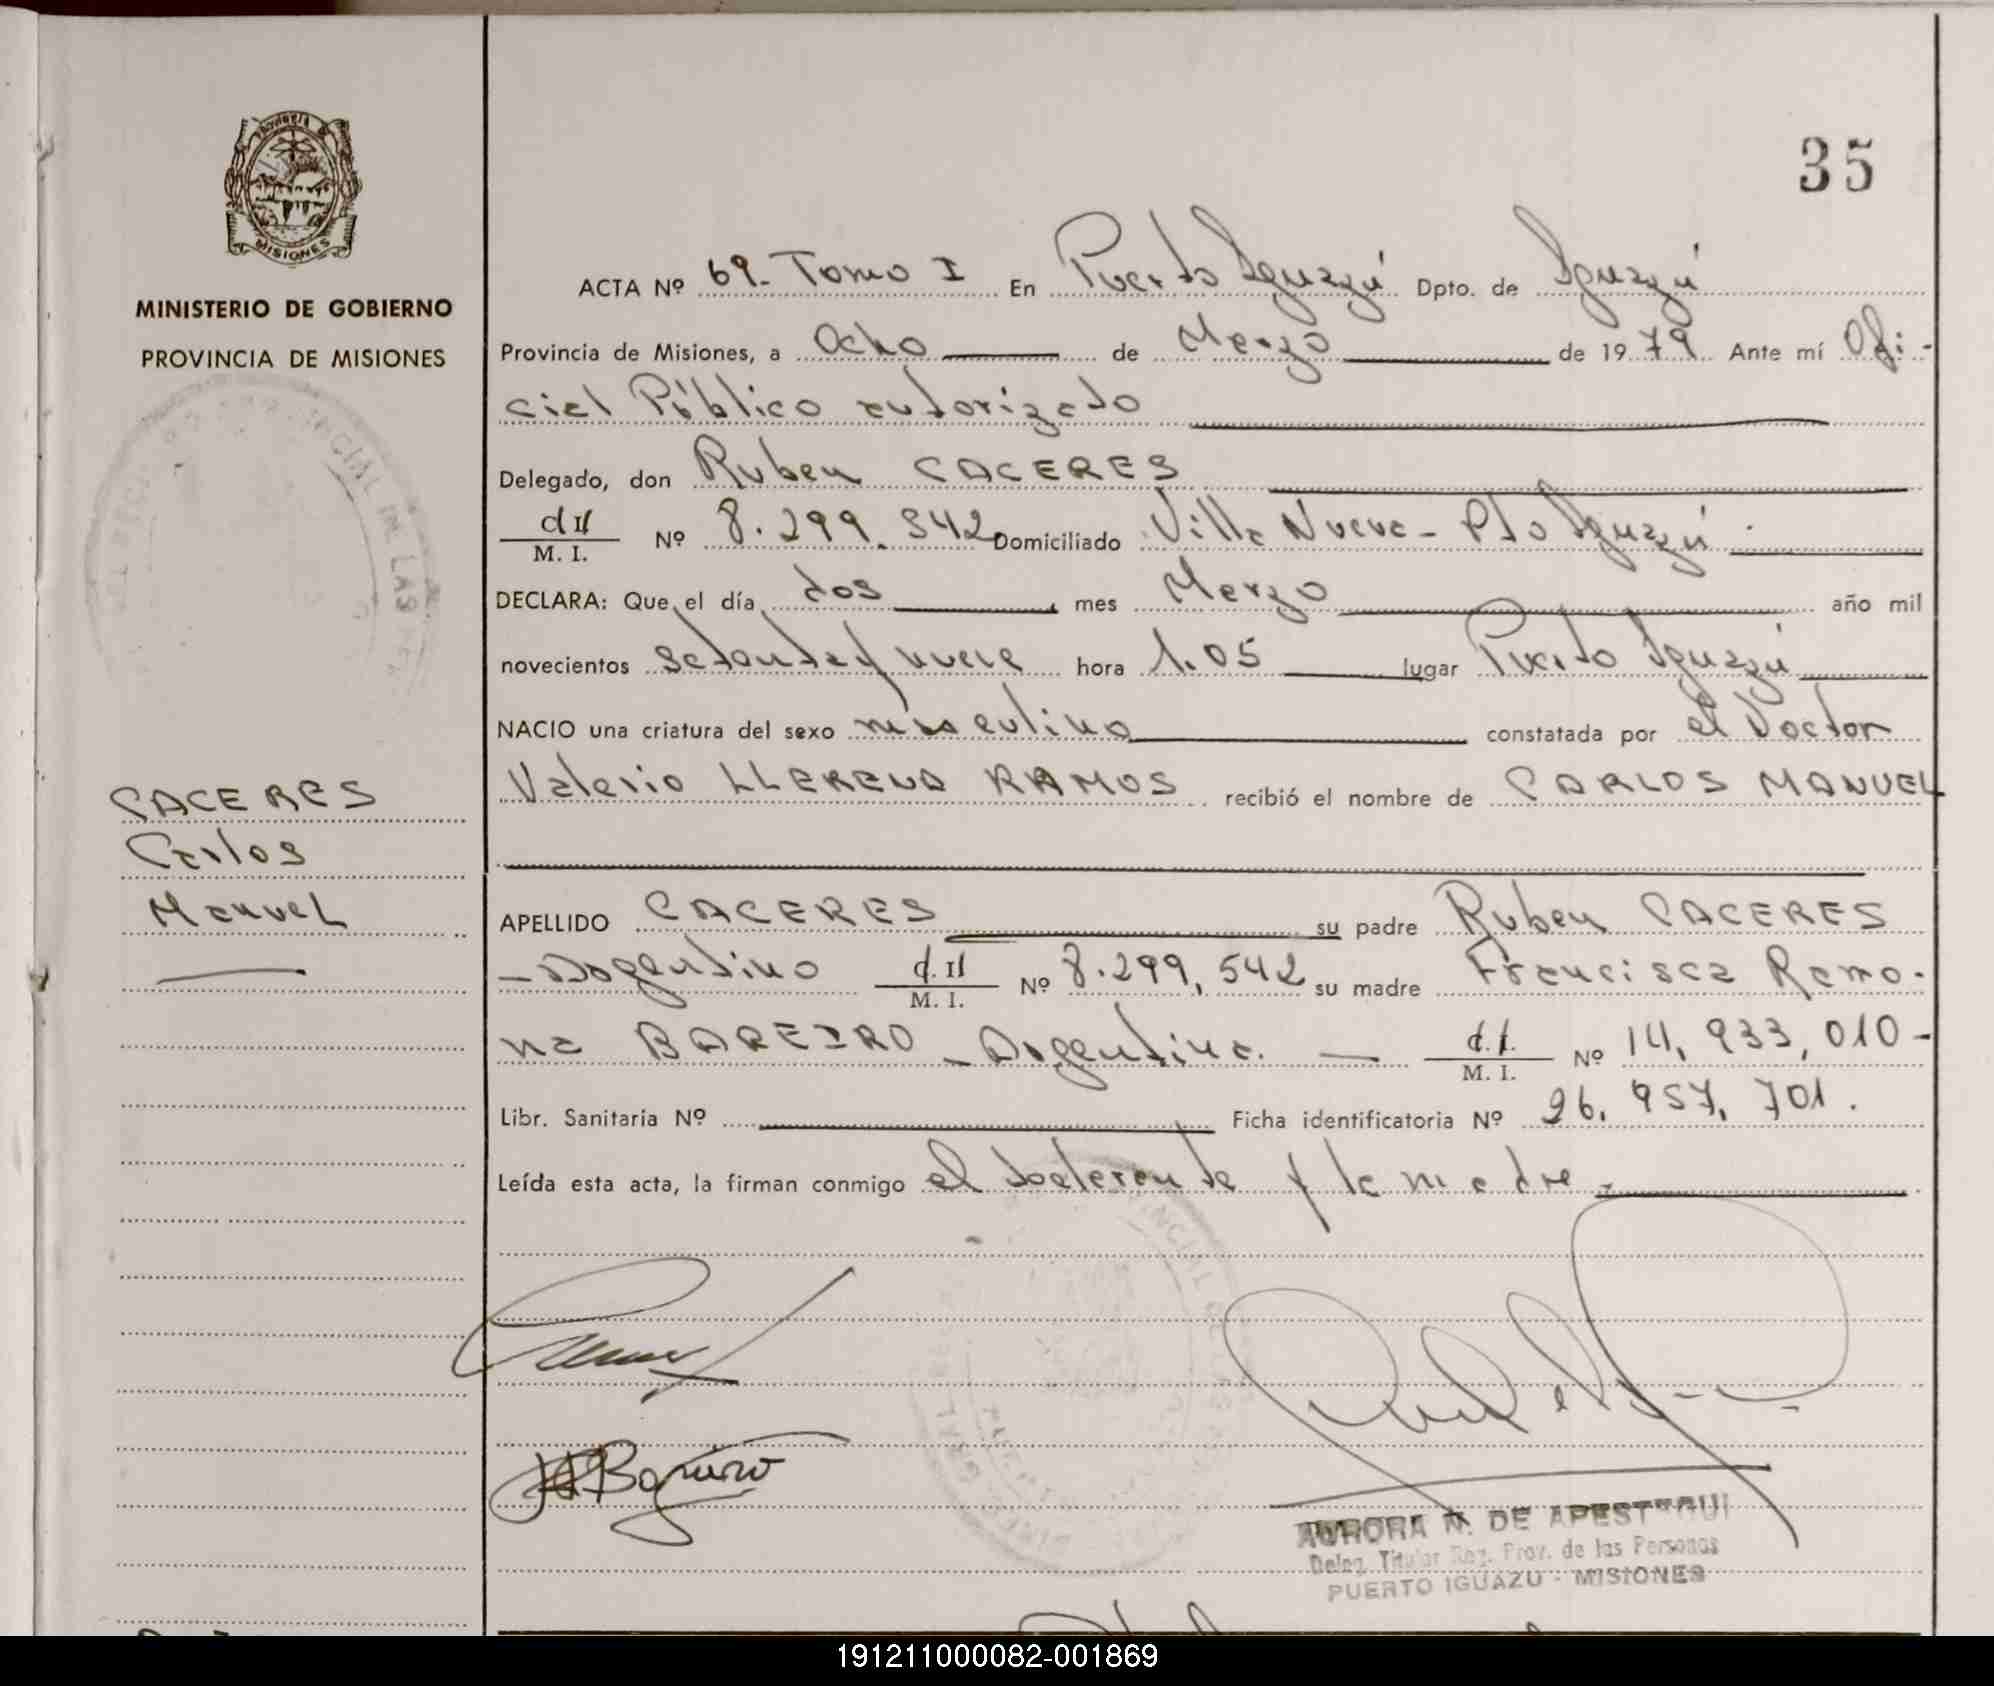 35
MISIONES
MINISTERIO DE GOBIERNO
PROVINCIA DE MISIONES
CACERES
Carlos
Manuel
ACTA Nº 69- Tomo I En Puerto Iguazú Dpto. de Iguazú
Provincia de Misiones, a Ocho de Marzo de 1979 Ante mí Ofi-
cial Público autorizado
Delegado, don Ruben CACERES
M. I. Nº 8.299.542 Domiciliado Villa Nueva - Pto Iguazú
DECLARA: Que el día dos mes Marzo año mil
novecientos setenta y nueve hora 1.05 lugar Puerto Iguazú
NACIO una criatura del sexo masculino constatada por el Doctor
Valerio LLERENA RAMOS recibió el nombre de CARLOS MANUEL
APELLIDO CACERES su padre Ruben CACERES
- Argentino M. I. Nº 8.299.542 su madre Francisca Ramo-
na BAREIRO - Argentina. - M. I. Nº 14.933.010-
Libr. Sanitaria Nº Ficha identificatoria Nº 26.957.701.
Leída esta acta, la firman conmigo el declarante y la madre.-
Bareiro
AURORA N. DE APESTEGUI
Deleg. Titular Reg. Prov. de las Personas
PUERTO IGUAZU - MISIONES
191211000082-001869